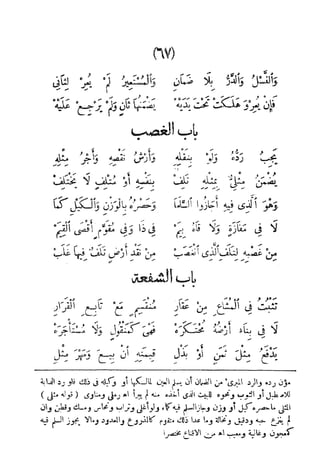 (٦٧)
وَالنَّسْلُ وَالدَّرُّ بِلَا ضَمَانِ وَالمُسْتَعِيرُ لَمْ يُعِرْ لِثَانِي
فَإِنْ يُعِرْ وَهَلَكَتْ تَحْتَ يَدَيْهِ يَضْمَنُهَا ثَانٍ وَلَمْ يَرْجِعْ عَلَيْهِ
باب الغصب
يَجِبُ رَدُّهُ وَلَوْ بِنَقْلِهِ وَأَرْشُ نَقْصِهِ وَأَجْرُ مِثْلِهِ
يُضْمَنُ مِثْلِيٌّ بِمِثْلِهِ تَلِفْ بِنَفْسِهِ أَوْ مُتْلِفٍ لَا يَخْتَلِفْ
وَهْوَ الَّذِي فِيهِ أَجَازُوا السَّلَمَا وَحَصْرُهُ بِالوَزْنِ وَالكَيْلِ كَمَا
لَا فِي مَفَازَةٍ وَلَا قَاهُ بِيَمْ فِي ذَا وَفِي مُقَوَّمٍ أَقْصَى القِيَمْ
مِنْ غَصْبِهِ لِتَلَفِ الَّذِي انْغَصَبْ مِنْ نَقْدِ أَرْضٍ تَلَفٌ فِيهَا غَلَبْ
باب الشفعة
تَثْبُتُ فِي المُشَاعِ مِنْ عَقَارِ مُنْقَسِمٍ مَعْ تَابِعِ القَرَارِ
لَا فِي بِنَاءٍ أَرْضُهُ مُحْتَكَرَهْ فَهْيَ كَمَنْقُولٍ وَلَا مُسْتَأْجَرَهْ
يَدْفَعُ مِثْلَ ثَمَنٍ أَوْ بَذَلْ قِيمَتَهُ أَنْ بِيعَ وَمَهْرَ مِثْلِ
مؤن رده والرد المبرئ من الضمان أن يسلم العين لمالكها أو وكيله في ذلك فلو رد الدابة
للاصطبل أو الثوب ونحوه للبيت الذي أخذه منه لم يبرأ اه رملي ومناوى (قوله مثلي)
المثلي ماحصره كيل أو وزن وجاز السلم فيه كماء ولو أغلي وتراب ونحاس ومسك وقطن وان
لم ينزع حبه ودقيق ونخالة وما عدا ذلك متقوم كالمذروع والمعدود ومالا يجوز السلم فيه
كمعجون وغالية ومعيب اه من الاقناع مختصرا